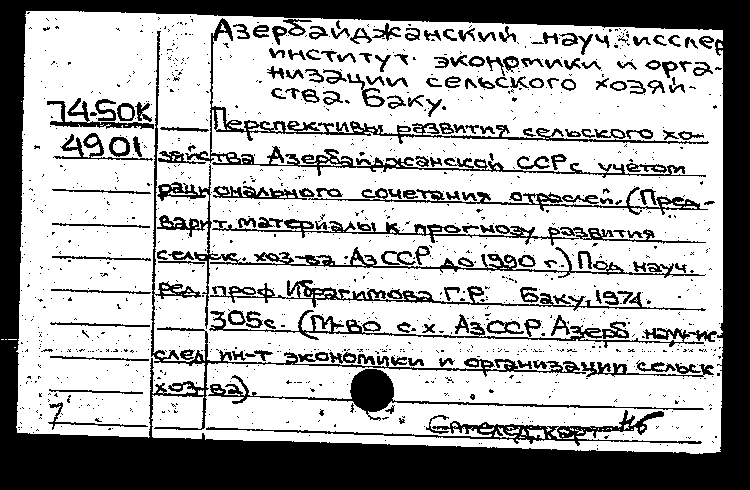 Азербайджанский науч.-исслед
институт экономики и орга-
низации сельского хозяй-
ства. Баку.
74-50К
4901
Перспективы развития сельского хо-
зяйства Азербайджанской ССР с учётом
рационального сочетания отраслей. (Пред-
варит. материалы к прогнозу развития
сельск. хоз-ва АзССР до 1990 г.) Под науч.
ред. проф. Ибрагимова Г.Р. Баку, 1974.
305с. (М-во с. х. АзССР. Азерб. науч-ис-
след. ин-т экономики и организации сельск.
хоз-ва).